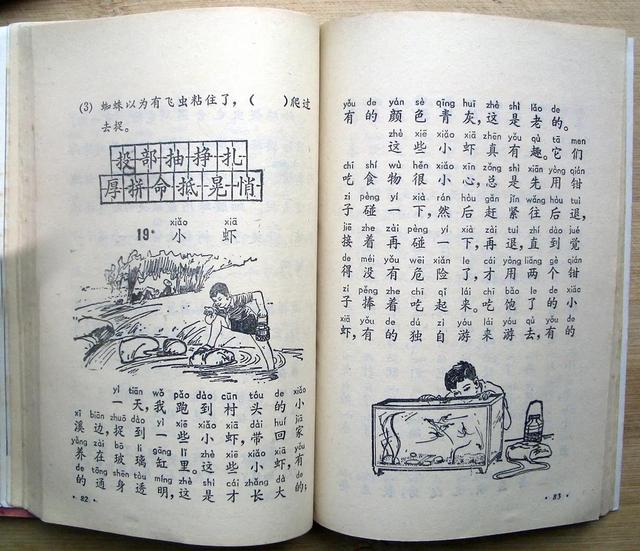 (3) 蜘蛛以为有飞虫粘住了，（　　）爬过
去捉。
投部抽挣扎
厚拼命抵晃悄
xiǎo xiā
19* 小 虾
yì tiān wǒ pǎo dào cūn tóu de xiǎo
一天，我跑到村头的小
xī biān zhuō dào yì xiē xiǎo xiā dài huí jiā
溪边，捉到一些小虾，带回家
yǎng zài bō li gāng lǐ zhè xiē xiǎo xiā yǒu
养在玻璃缸里。这些小虾，有
de tōng shēn tòu míng zhè shì cái zhǎng dà de
的通身透明，这是才长大的；
·82·
yǒu de yán sè qīng huī zhè shì lǎo de
有的颜色青灰，这是老的。
zhè xiē xiǎo xiā zhēn yǒu qù tā men
这些小虾真有趣。它们
chī shí wù hěn xiǎo xīn zǒng shì xiān yòng qián
吃食物很小心，总是先用钳
zi pèng yí xià rán hòu gǎn jǐn wǎng hòu tuì
子碰一下，然后赶紧往后退，
jiē zhe zài pèng yí xià zài tuì zhí dào jué
接着再碰一下，再退，直到觉
de méi yǒu wēi xiǎn le cái yòng liǎng gè qián
得没有危险了，才用两个钳
zi pěng zhe chī qǐ lái chī bǎo le de xiǎo
子捧着吃起来。吃饱了的小
xiā yǒu de dú zì yóu lái yóu qù yǒu de
虾，有的独自游来游去，有的
·83·